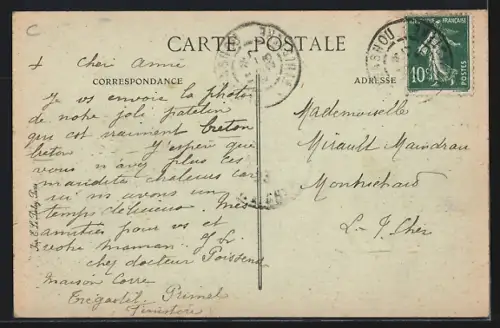 C
CARTE POSTALE
CORRESPONDANCE
ADRESSE
FRANÇAISE
10c
POSTES
+ Cher Annie
Je vs envoie la photo
de notre joli patelin
qui est vraiment breton
breton — J'espère que
vous n'avez plus ces
maudites chaleurs car
ici ns avons un
temps délicieux. Mes
amitiés pour vs et
votre maman.
chez docteur Poisson
Maison Corre
Trégastel Primel
Finistère
Mademoiselle
Mirault Maindrau
Montrichard
L. & Cher